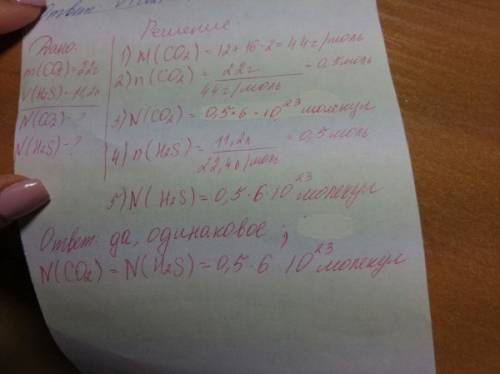 Ответ
Решение.
Дано:
m(CO₂)=22г
V(H₂S)=11,2л
N(CO₂)-?
N(H₂S)-?
1) M(CO₂)=12+16·2=44г/моль
2) n(CO₂)= 22г / 44г/моль = 0,5моль
3) N(CO₂)=0,5·6·10²³ молекул
4) n(H₂S)= 11,2л / 22,4л/моль = 0,5моль
5) N(H₂S)=0,5·6·10²³ молекул
Ответ: да, одинаковое;
N(CO₂)=N(H₂S)=0,5·6 10²³ молекул